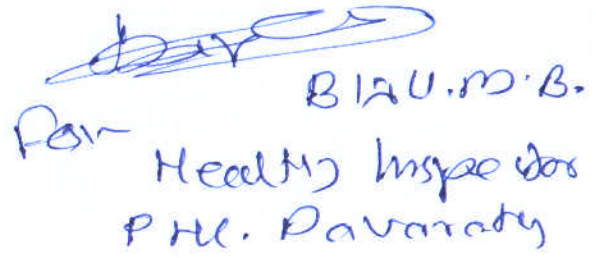 BIJU.M.B.
For
Health Inspector
PHC. Pavaratty